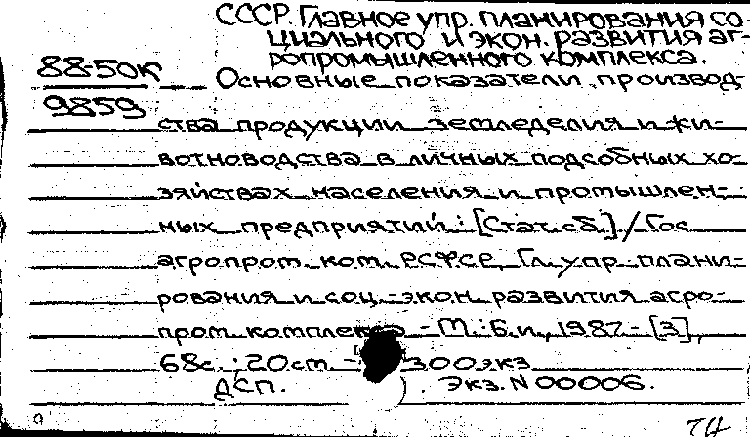 СССР. Главное упр. планирования со-
циального и экон. развития аг-
ропромышленного комплекса.
88-50к
Основные показатели производ-
9859
ства продукции земледелия и жи-
вотноводства в личных подсобных хо-
зяйствах населения и промышлен-
ных предприятий: [Стат. сб.] / Гос
агропром. ком. РСФСР, Гл. упр. плани-
рования и соц.-экон. развития агро-
пром. комплекса - М.: Б.и., 1987 - [3],
68с.; 20см. - 300экз
ДСП. ). Экз. N 00006.